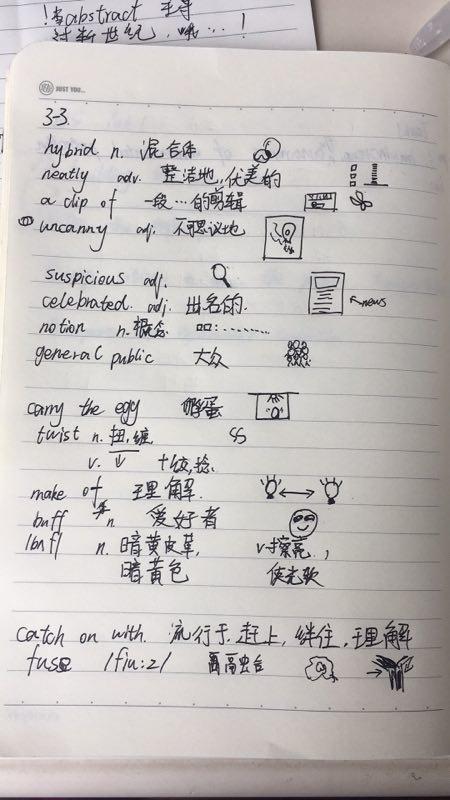 !当abstract 主导
过新世纪,哦…!
JUST YOU...
3-3
hybrid n. 混合体
neatly adv. 整洁地,优美的
a clip of 一段…的剪辑
uncanny adj. 不思议地
suspicious adj.
celebrated. adj. 出名的. news
notion n. 概念
general public 大众
carry the egg 孵蛋
twist n. 扭,缠
v. ↓ +绞,捻.
make of 理解.
buff n 爱好者
n. 暗黄皮革, v 擦亮,
暗黄色 使光软
catch on with 流行于,赶上,绊住,理解
fuse /fiu:z/